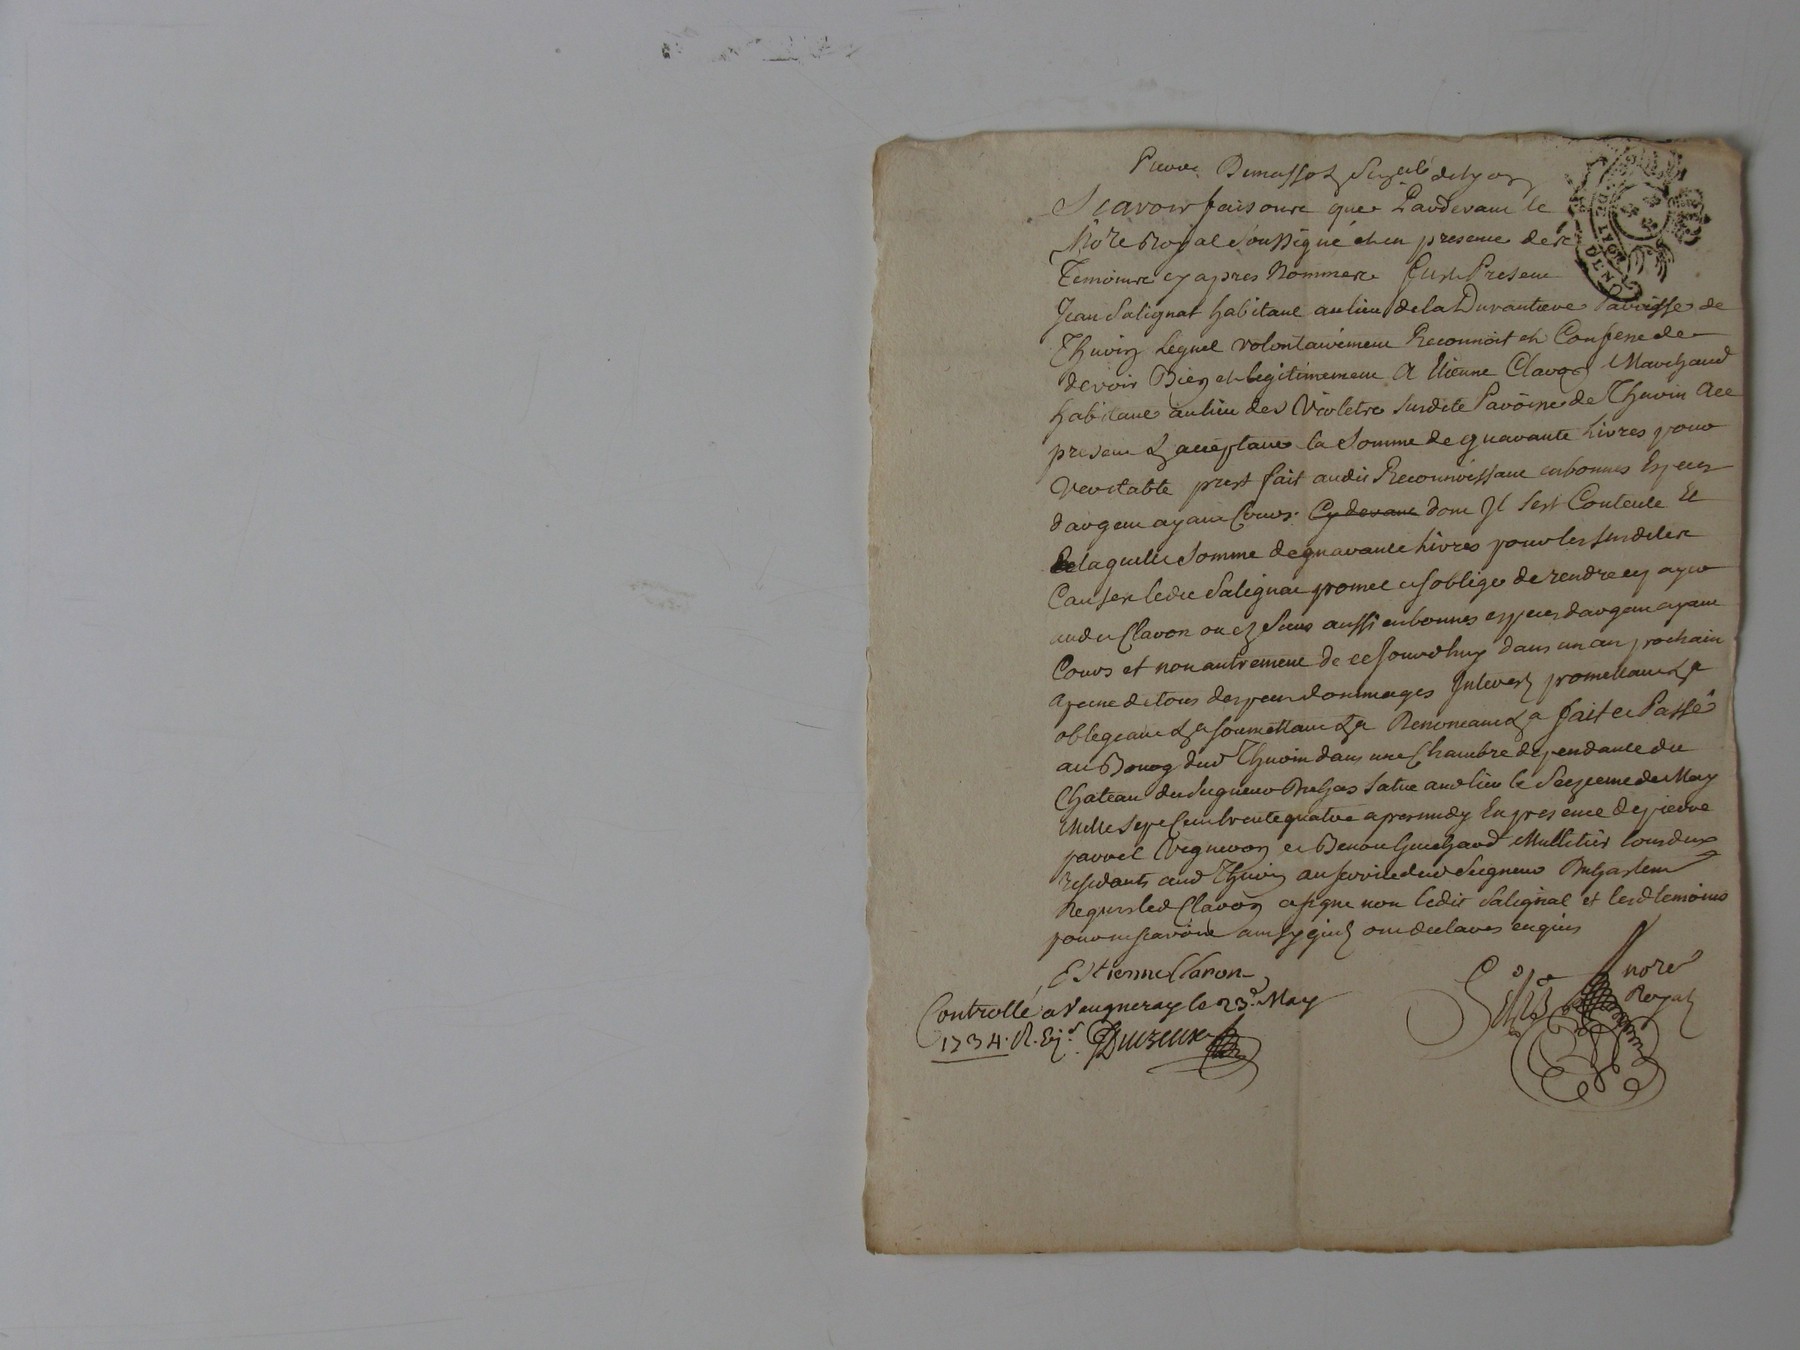 Pierre Dumassot
Scavoir faisons que Pardevant le
No.re Royal Soussigné et en presence des
Temoins cy apres Nommes fust Present
Jean Salignat habitant au lieu de la Durantiere Paroisse de
Thurin Lequel volontairement Reconnoit et Confesse de
devoir Bien et legitimement A Etienne Clavon Marchand
habitant au lieu des Violetes susdite Paroisse de Thurin Ace
present & acceptant la Somme de quarante Livres pour
veritable prest fait audit Reconnoissant en bonnes Especes
dargent ayant Cours. Cy devant dont Jl sest Contenté Et
De laquelle Somme de quarante Livres pour les susdites
Causes ledit Salignat promet et soblige de rendre et payer
audit Clavon ou es siens aussi en bonnes especes dargent ayant
Cours et non autrement de ce Jourdhuy dans un an prochain
a peine de tous despens dommages Interest promettant &a
obligeant &a soumettant &a Renonceant &a fait et Passé
au Bourg dud Thurin dans une Chambre dependante du
Chateau du Seigneur aud lieu le Seizieme de May
Mille Sept Cent trente quatre apres midy En presence de pierre
et Benoit Guichard Mulletier tous deux
residants aud Thurin au service dud Seigneur
Requis led Clavon a signé non ledit Salignat et lesd temoins
pour ne scavoir ainsy quils ont declarés enquis
Estienne Clavon
nore
Royal
Controllé a Vaugneray le 23.e May
1734. R.
DE LYON